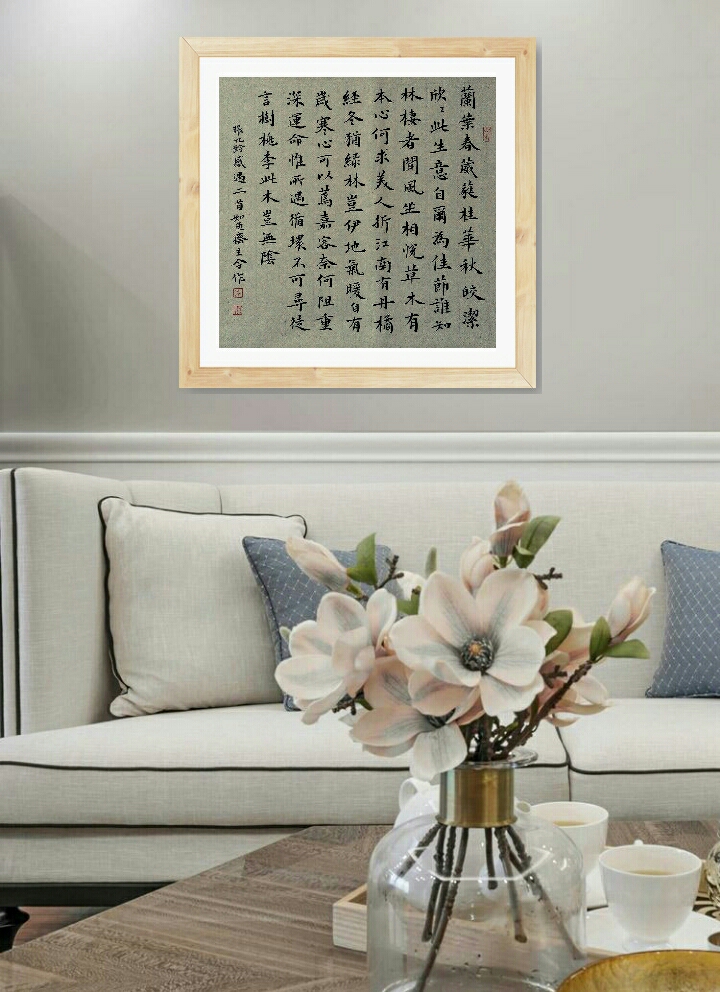 蘭葉春葳蕤桂華秋皎潔
欣〻此生意自爾為佳節誰知
林棲者聞風坐相悅草木有
本心何求美人折江南有丹橘
經冬猶綠林豈伊地氣暖自有
歲寒心可以薦嘉客奈何阻重
深運命惟所遇循環不可尋徒
言樹桃李此木豈無陰
張九齡感遇二首如齋主令作